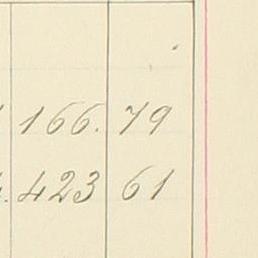 166. 79
423 61